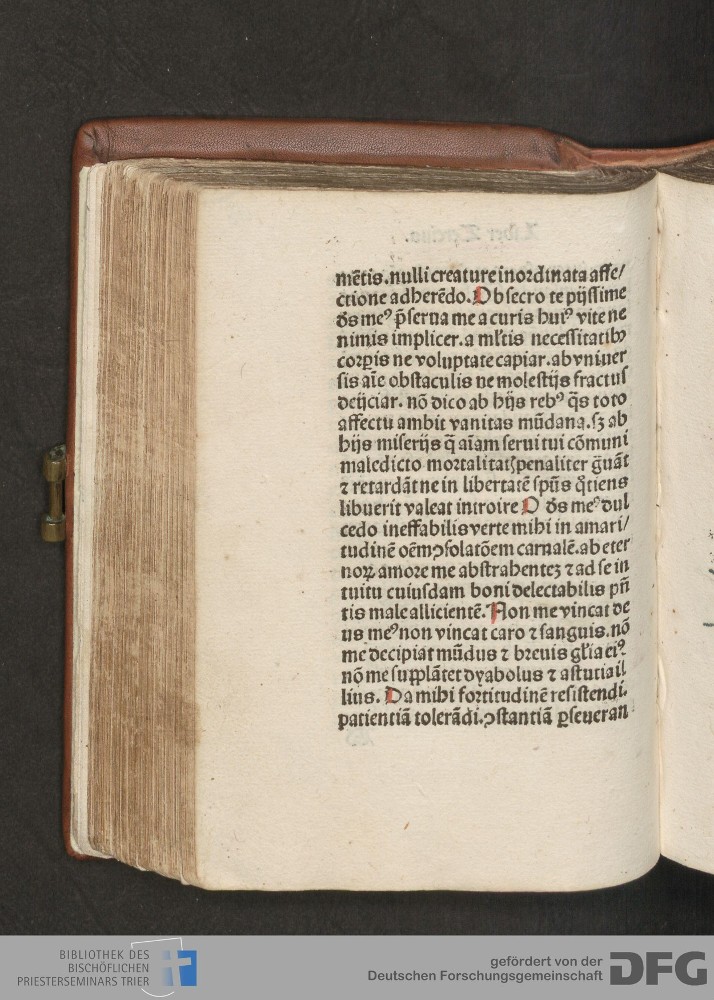 mētis.nulli creature inordinata affe/
ctione adherēdo. Obsecro te pijssime
ds̄ meꝰ p̄serua me a curis huiꝰ vite ne
nimis implicer.a ml̄tis necessitatibꝫ
corꝑis ne voluptate capiar.ab vniuer
sis aīe obstaculis ne molestijs fractus
deijciar. nō dico ab hijs rebꝰ q̄s toto
affectu ambit vanitas mūdana.sꝫ ab
hijs miserijs q̄ aīam serui tui cōmuni
maledicto mortalitatꝭ penaliter g̈uāt
⁊ retardāt ne in libertatē sp̄us q̊tiens
libuerit valeat introire O ds̄ meꝰ dul
cedo ineffabilis verte mihi in amari/
tudinē oēm ꝯsolatōem carnalē.ab eter
noꝝ amore me abstrahenteꝫ ⁊ ad se in
tuitu cuiusdam boni delectabilis pn̄
tis male allicientē. Non me vincat de
us meꝰ non vincat caro ⁊ sanguis.nō
me decipiat mūdus ⁊ breuis gl̄ia eiꝰ.
nō me supplātet dyabolus ⁊ astutia il
lius. Da mihi fortitudinē resistendi.
patientiā tolerādi.ꝯstantiā ꝑseueran
BIBLIOTHEK DES
BISCHÖFLICHEN
PRIESTERSEMINARS TRIER
gefördert von der
Deutschen Forschungsgemeinschaft
DFG